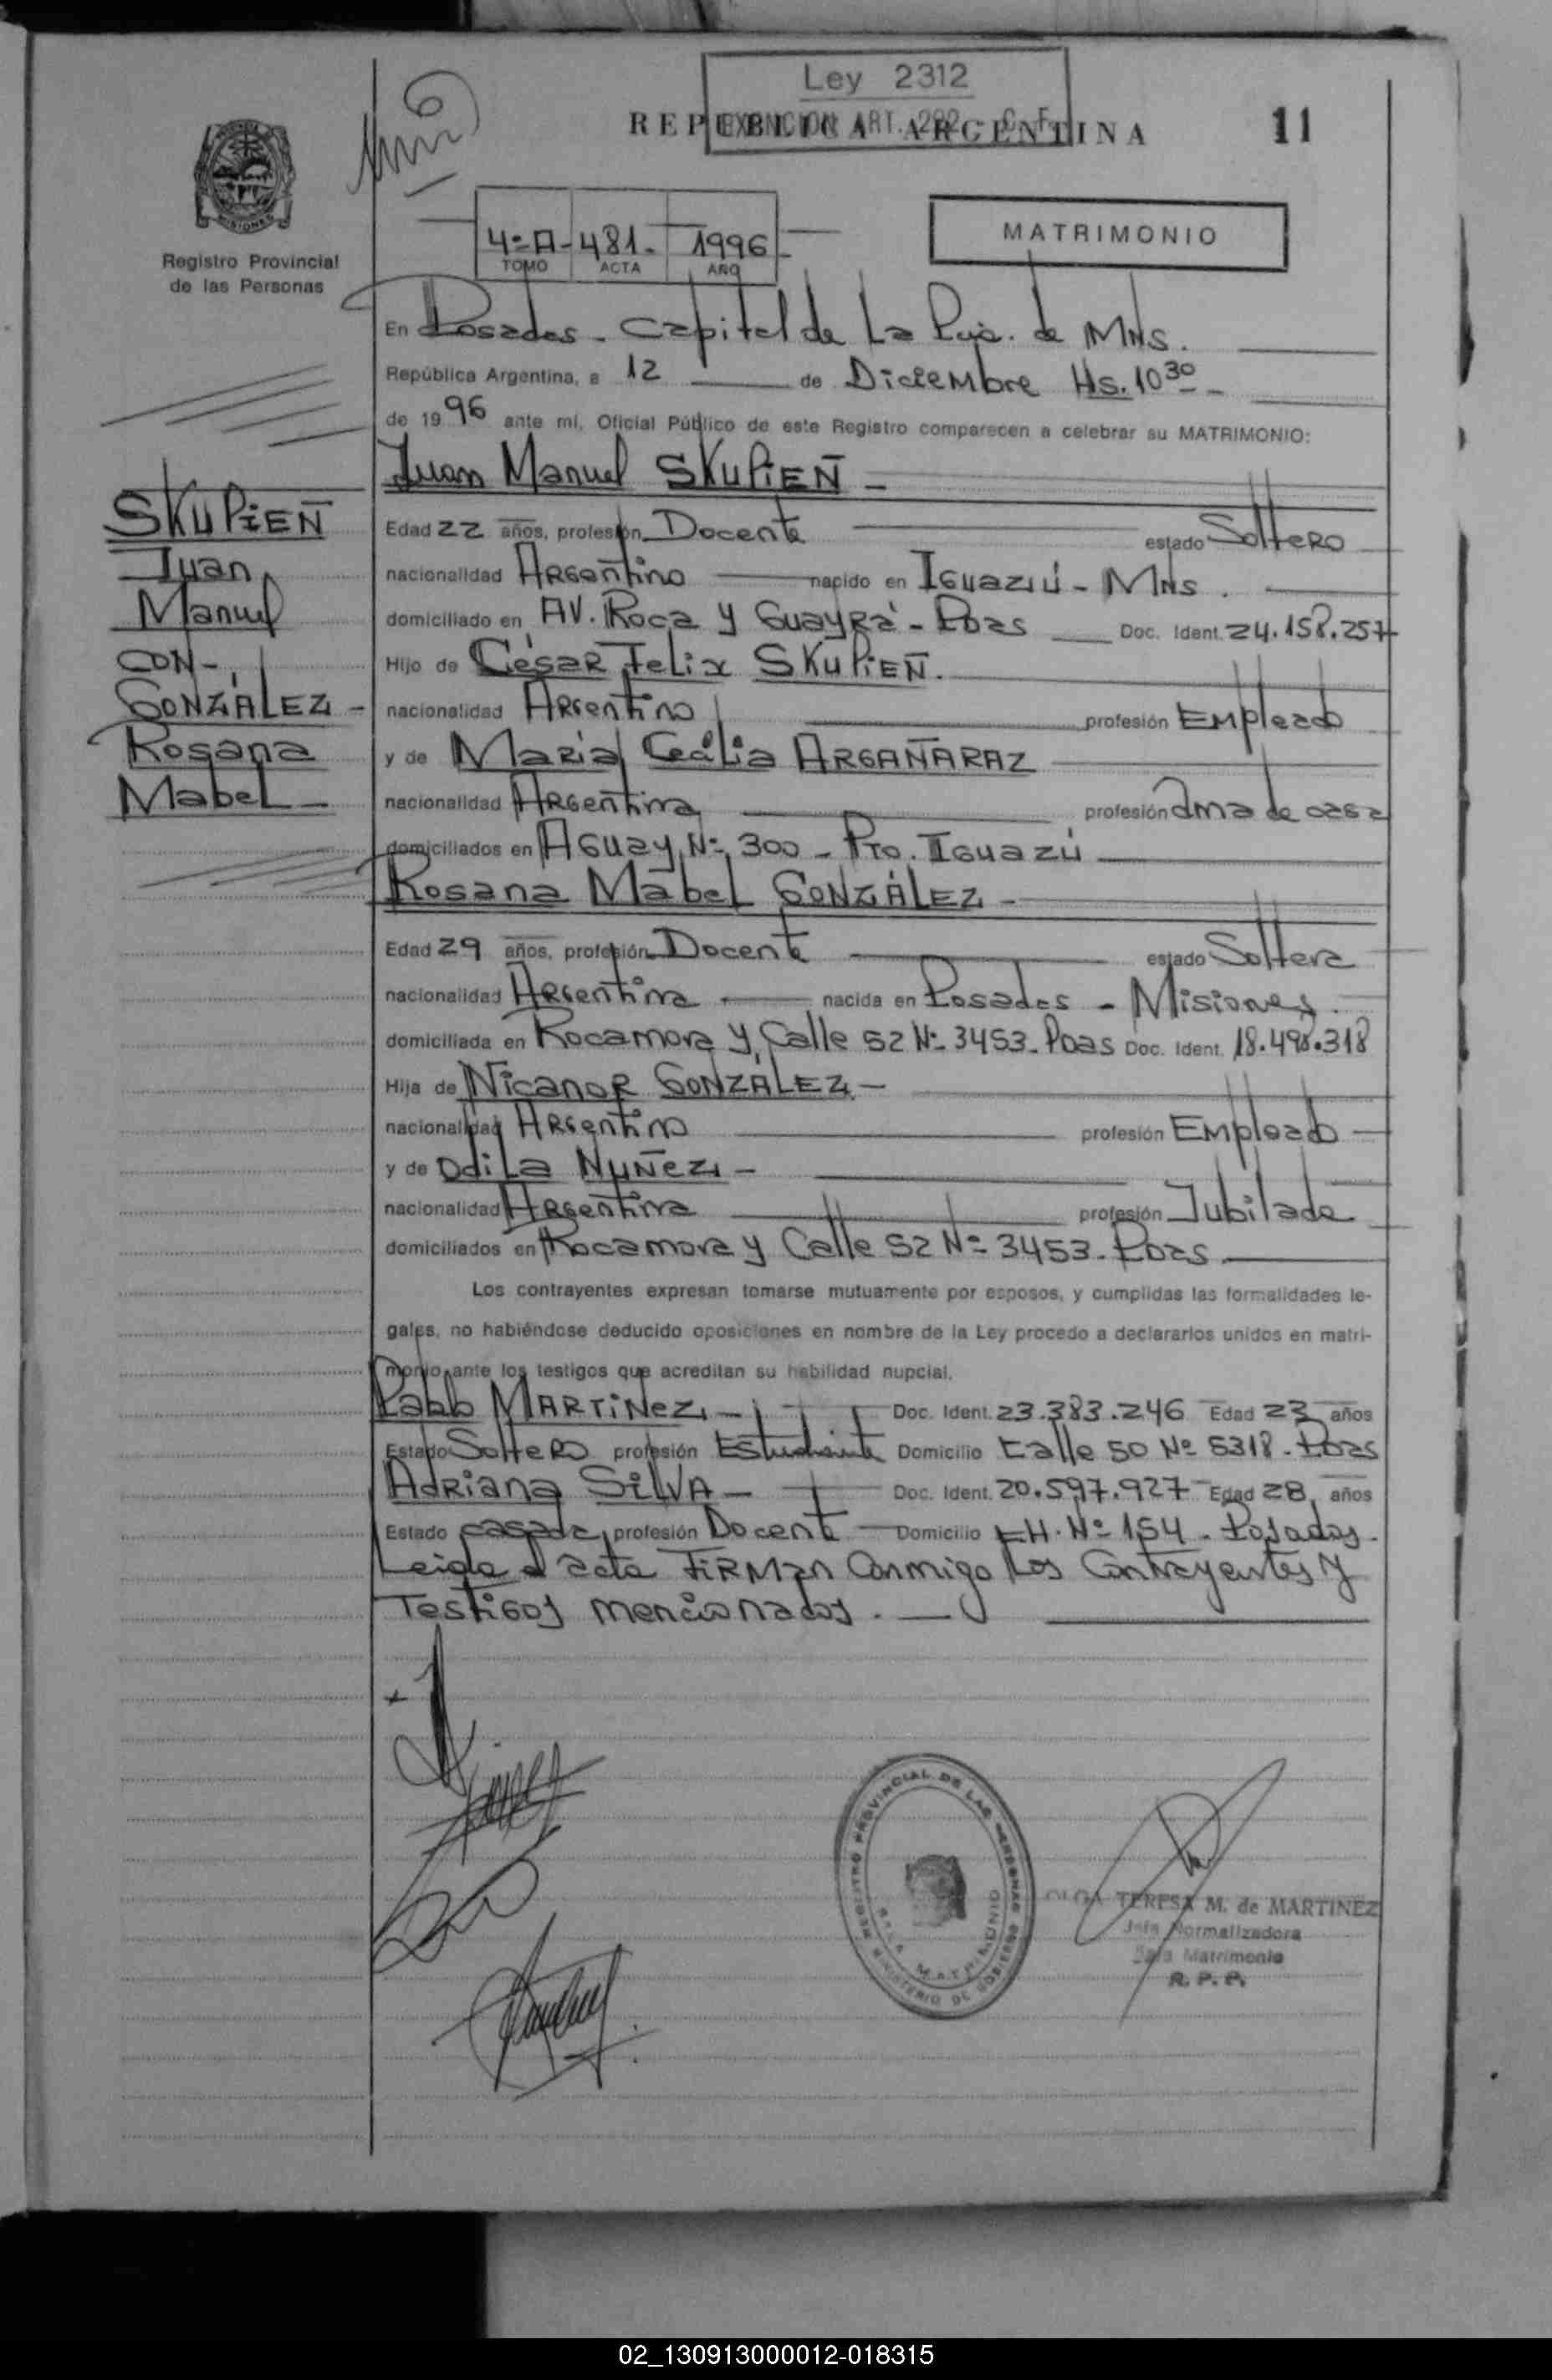 Ley 2312
EXENCION ART. 292 - C. F.
REPUBLICA ARGENTINA
11
MISIONES
Registro Provincial
de las Personas
4º A - 481 - 1996 -
TOMO ACTA AÑO
MATRIMONIO
En Posadas - Capital de La Pcia. de Mns.
República Argentina, a 12 de Diciembre Hs. 10 30 -
de 1996 ante mi, Oficial Público de este Registro comparecen a celebrar su MATRIMONIO:
Juan Manuel SKUPIEÑ -
SKUPIEÑ
Juan
Manuel
CON -
GONZÁLEZ -
Rosana
Mabel -
Edad 22 años, profesión Docente estado Soltero
nacionalidad Argentino nacido en Iguazú - Mns.
domiciliado en AV. Roca y Guayrá - Pdas Doc. Ident. 24.158.257
Hijo de César Felix SKUPIEÑ.
nacionalidad Argentino profesión Empleado
y de Maria Cecilia ARGAÑARAZ
nacionalidad Argentina profesión ama de casa
domiciliados en Aguay Nº 300 - Pto. Iguazú
Rosana Mabel GONZÁLEZ -
Edad 29 años, profesión Docente estado Soltera
nacionalidad Argentina nacida en Posadas - Misiones.
domiciliada en Rocamora y Calle 52 Nº 3453 - Pdas Doc. Ident. 18.498.318
Hija de Nicanor GONZÁLEZ -
nacionalidad Argentino profesión Empleado
y de Odila Nuñez -
nacionalidad Argentina profesión Jubilada
domiciliados en Rocamora y Calle 52 Nº 3453 - Pdas.
Los contrayentes expresan tomarse mutuamente por esposos, y cumplidas las formalidades le-
gales, no habiéndose deducido oposiciones en nombre de la Ley procedo a declararlos unidos en matri-
monio ante los testigos que acreditan su habilidad nupcial.
Pablo MARTINEZ - Doc. Ident. 23.383.246 Edad 23 años
Estado Soltero profesión Estudiante Domicilio Calle 50 Nº 5318 - Pdas
Adriana SILVA - Doc. Ident. 20.597.927 Edad 28 años
Estado casada profesión Docente Domicilio CH. Nº 154 - Posadas -
Leida el acta Firman Conmigo los Contrayentes y
Testigos mencionados. -
REGISTRO PROVINCIAL DE LAS PERSONAS
MINISTERIO DE GOBIERNO
SALA MATRIMONIO
OLGA TERESA M. de MARTINEZ
Jefa Normalizadora
Sala Matrimonio
R. P. P.
02_130913000012-018315